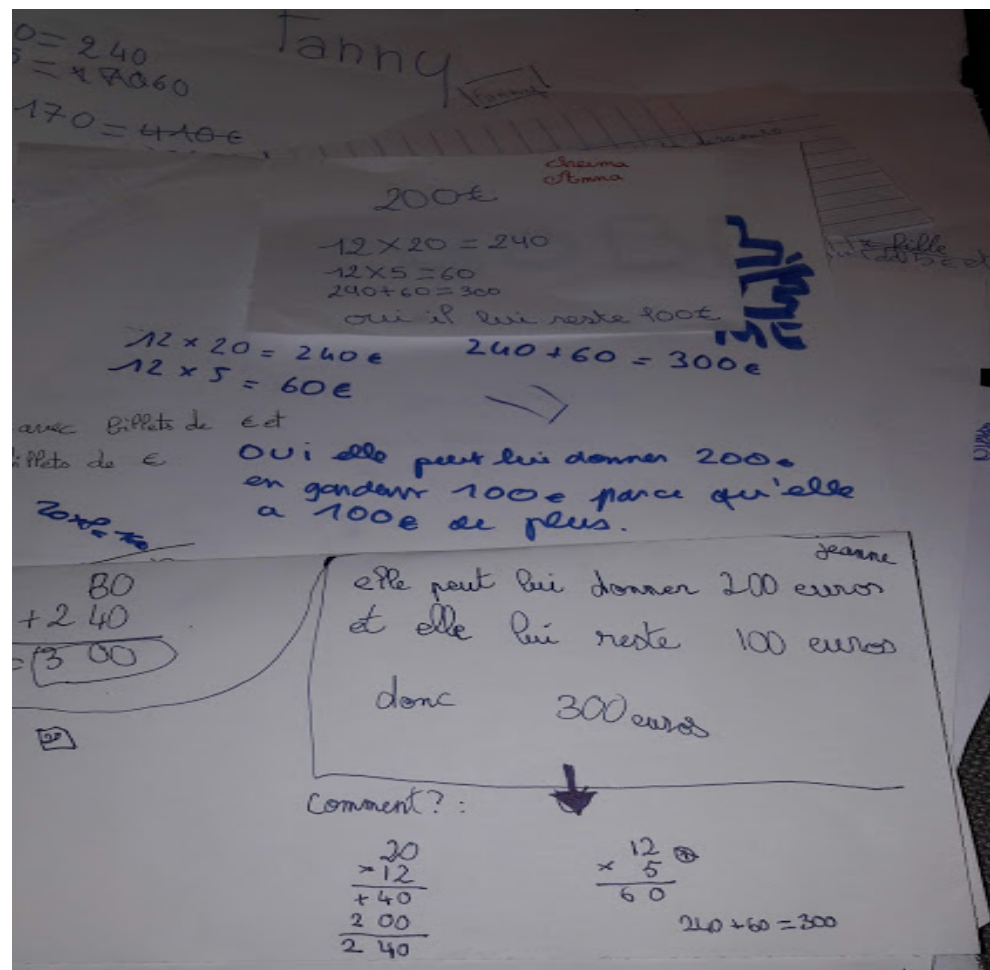 0 = 240
5 = 060
170 = 410€
Fanny
Fanny
Amna
200€
12 × 20 = 240
12 × 5 = 60
240 + 60 = 300
oui il lui reste 100€
fille
12 × 20 = 240€
240 + 60 = 300€
12 × 5 = 60€
avec billets de € et
illets de €
OUi elle peut lui donner 200€
en gardant 100€ parce qu'elle
a 100€ de plus.
80
+ 240
= 300
jeanne
elle peut lui donner 200 euros
et elle lui reste 100 euros
donc 300 euros
Comment? :
20
× 12
+ 40
2 00
2 40
12
× 5
6 0
240 + 60 = 300